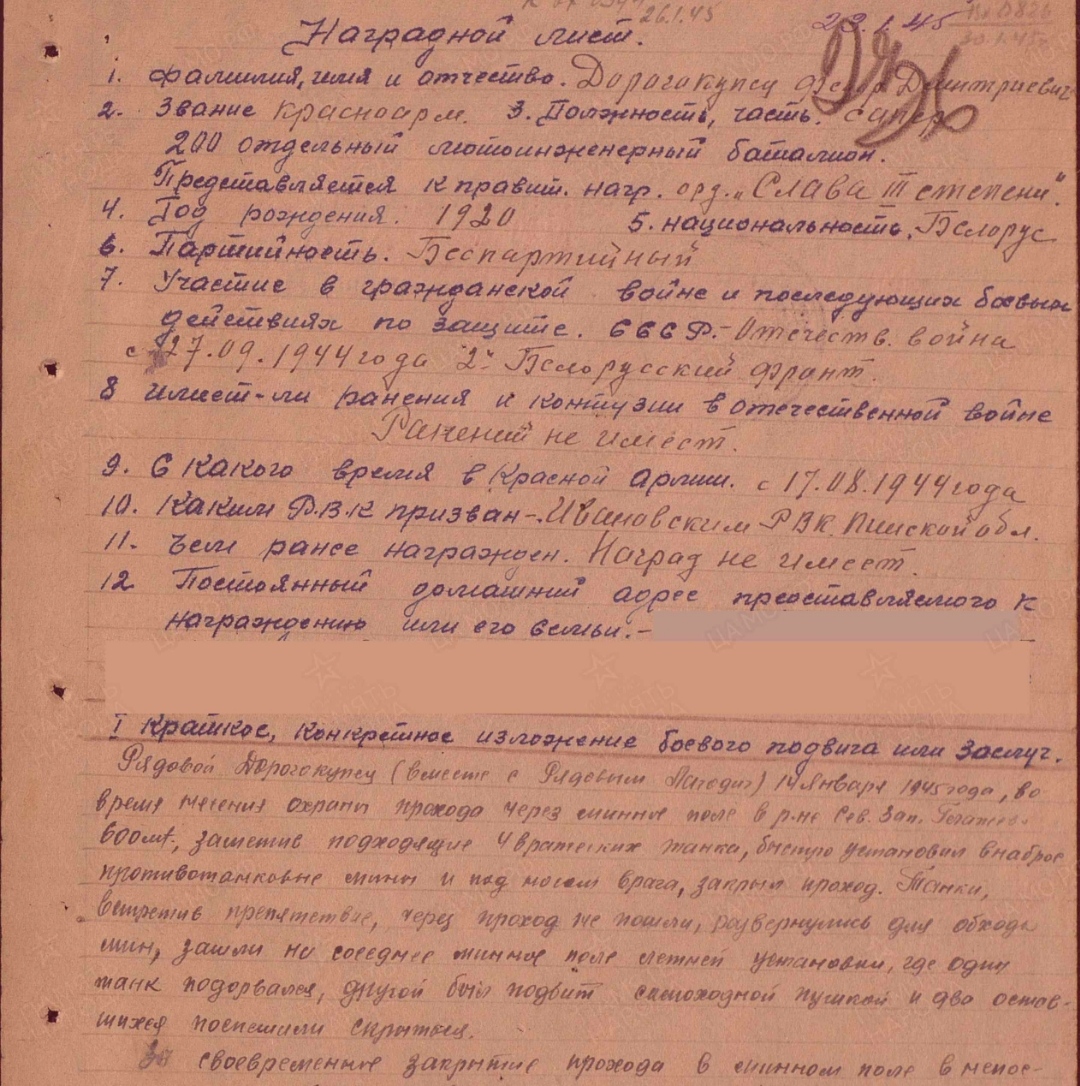 26.1.45
29.1.45
30.1.45г
Наградной лист.
1. Фамилия, имя и отчество. Дорогокупец Федор Дмитриевич
2. Звание красноарм. 3. Должность, часть. Сапер
200 отдельный мотоинженерный баталион.
Представляется к правит. нагр. орд. „Слава III степени".
4. Год рождения. 1920 5. национальность. Белорус
6. Партийность. Беспартийный
7. Участие в гражданской войне и последующих боевых
действиях по защите. СССР. - Отечеств. война
с 27.09.1944 года 2й Белорусский фронт.
8 имеет-ли ранения и контузии в отечественной войне
Ранений не имеет.
9. С какого время в Красной Армии. с 17.08.1944 года
10. Каким Р.В.К призван -. Ивановским РВК. Пинской обл.
11. Чем ранее награжден. Наград не имеет.
12 Постоянный домашний адрес преоставляемого к
награждению или его семьи. -
I Краткое, конкретное изложение боевого подвига или заслуг.
Рядовой Дорогокупец (вместе с Рядовым) 14 января 1945 года, во
время несения охраны прохода через минное поле в р-не Сев. Зап.
600 мт, заметив подходящие 4 вражеских танка, быстро установил внаброс
противотанковые мины и под носом врага, закрыл проход. Танки,
встретив препятствие, через проход не пошли, развернулись для обхода
мин, зашли на соседнее минное поле летней установки, где один
танк подорвался, другой был подбит самоходной пушкой и два остав-
шихся поспешили скрыться.
За своевременное закрытие прохода в минном поле в непос-